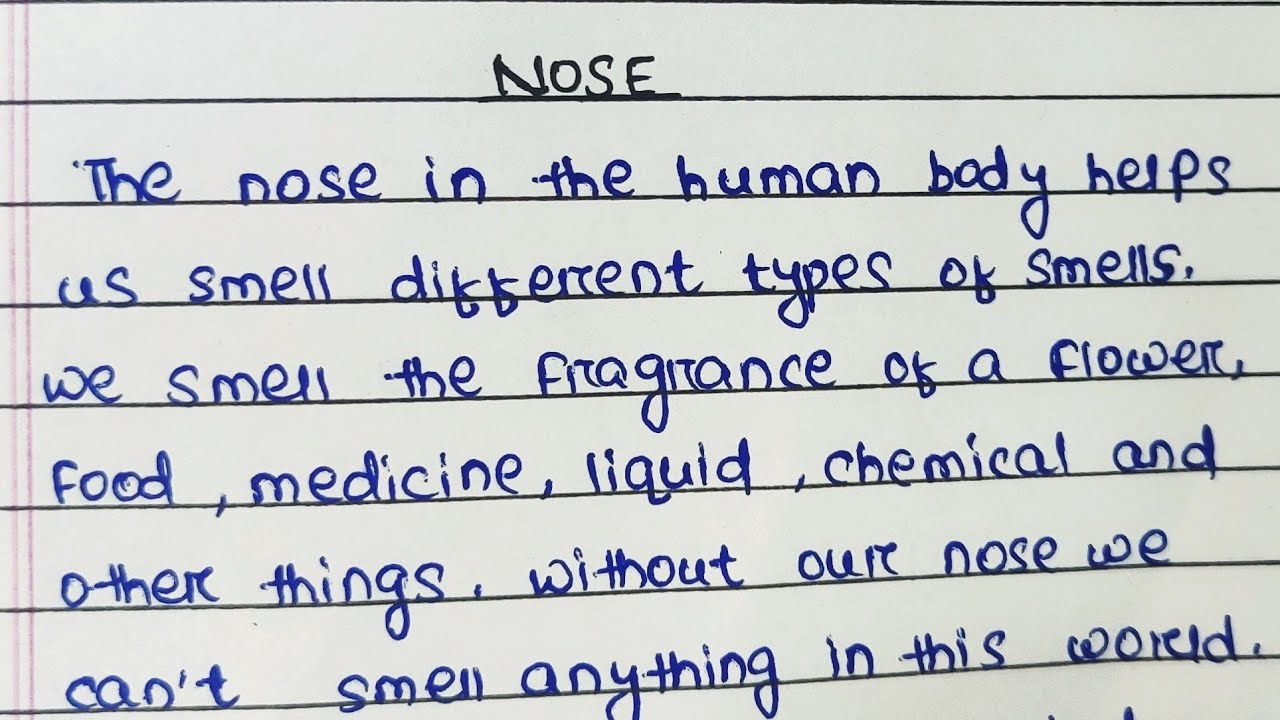 NOSE
The nose in the human body helps
us smell different types of smells.
we smell the fragrance of a flower,
food, medicine, liquid, chemical and
other things. without our nose we
can't smell anything in this world.